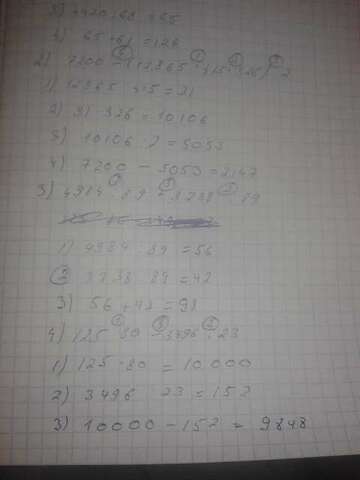 3) 65+61=126
2) 7200-(12865:415·326):2
1) 12865:415=31
2) 31·326=10106
3) 10106:2=5053
4) 7200-5053=2147
3) 4984:89+3738:89
1) 4984:89=56
2) 3738:89=42
3) 56+42=98
4) 125·80-3496:23
1) 125·80=10.000
2) 3496 23=152
3) 10000-152=9848